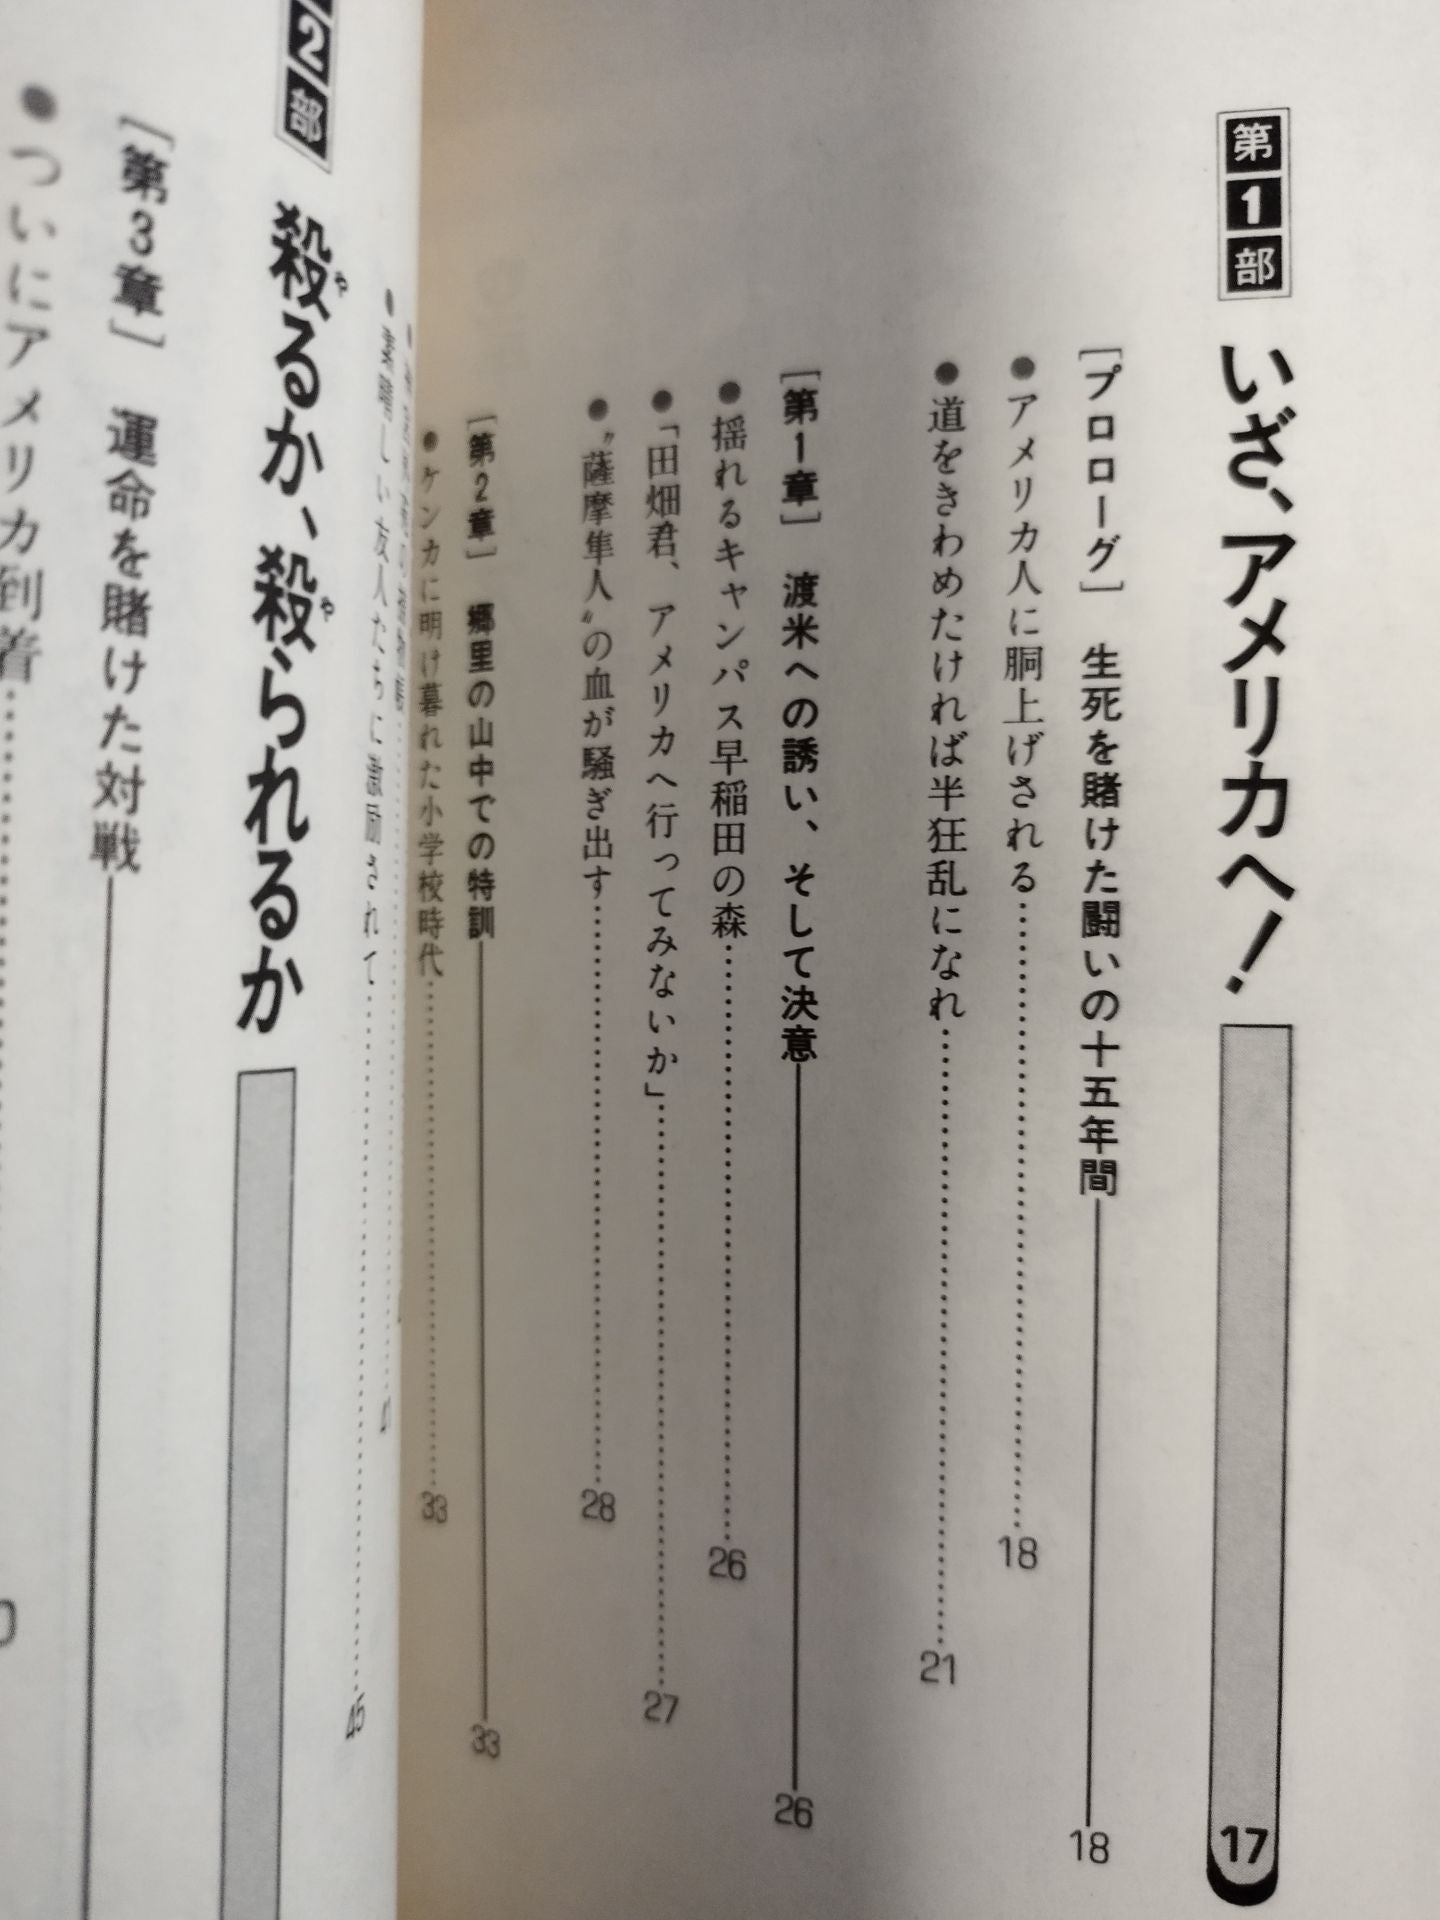 第1部 いざ、アメリカへ! 17
[プロローグ] 生死を賭けた闘いの十五年間 18
●アメリカ人に胴上げされる 18
●道をきわめたければ半狂乱になれ 21
[第1章] 渡米への誘い、そして決意 26
●揺れるキャンパス早稲田の森 26
●「田畑君、アメリカへ行ってみないか」 27
●〝薩摩隼人〟の血が騒ぎ出す 28
[第2章] 郷里の山中での特訓 33
●ケンカに明け暮れた小学校時代 33
41
●素晴しい友人たちに激励されて 45
2部 殺るか、殺られるか
や
や
[第3章] 運命を賭けた対戦
●ついにアメリカ到着